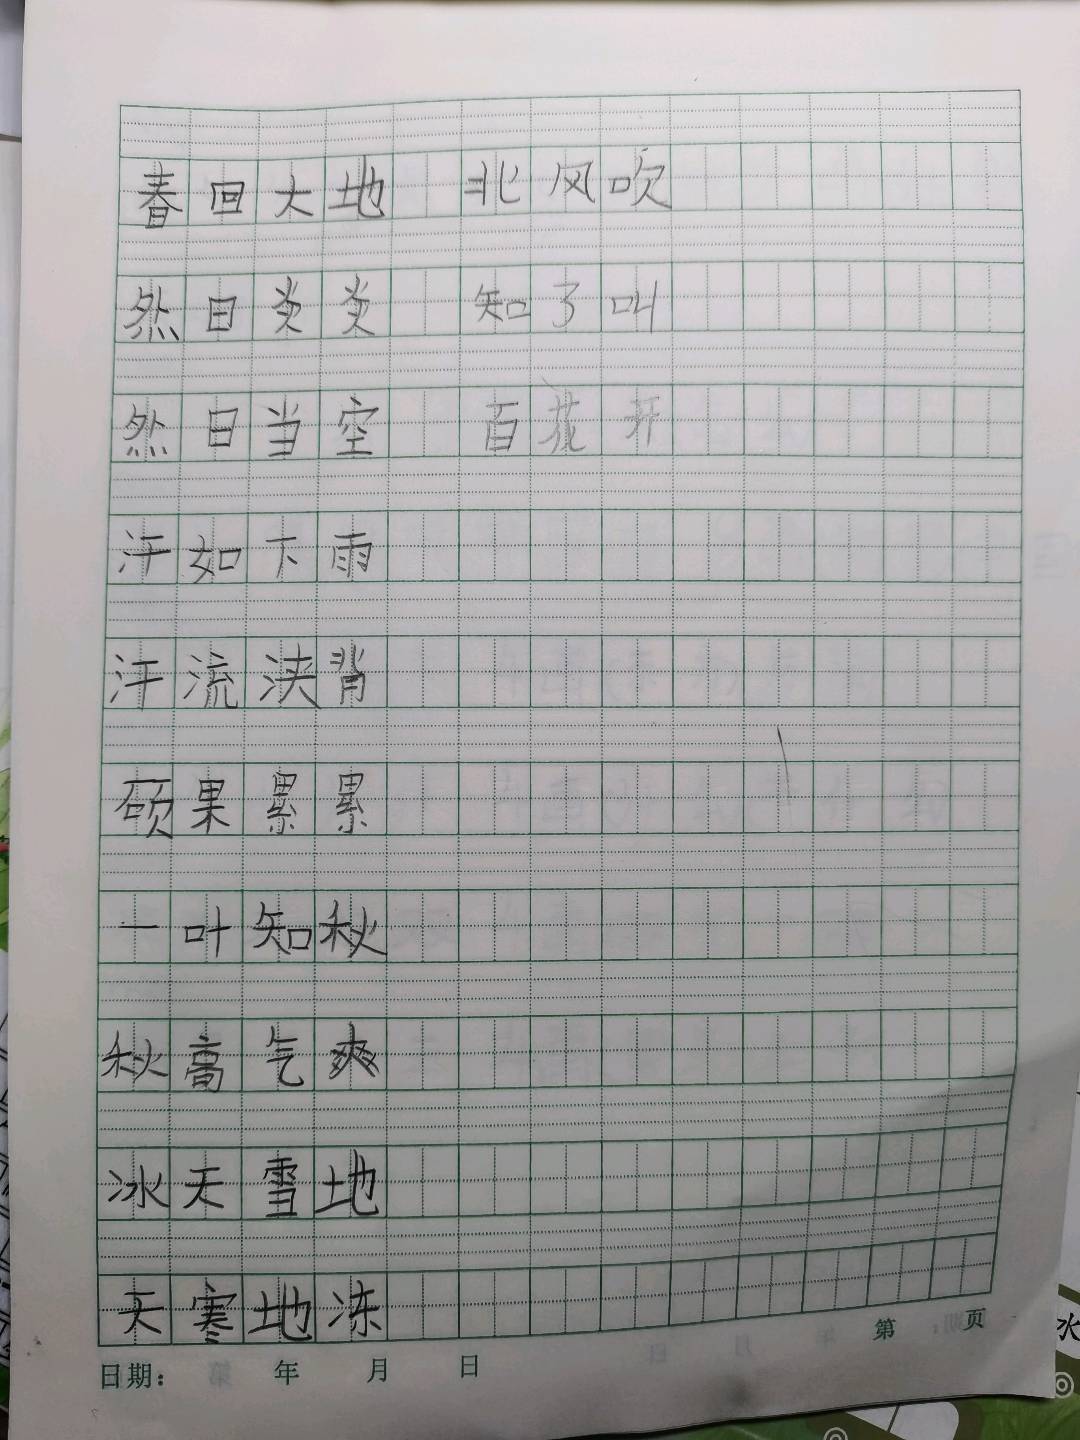 春回大地 北风吹
然日炎炎 知了叫
然日当空 百花开
汗如下雨
汗流浃背
硕果累累
一叶知秋
秋高气爽
冰天雪地
天寒地冻
第 页
日期： 年 月 日
水